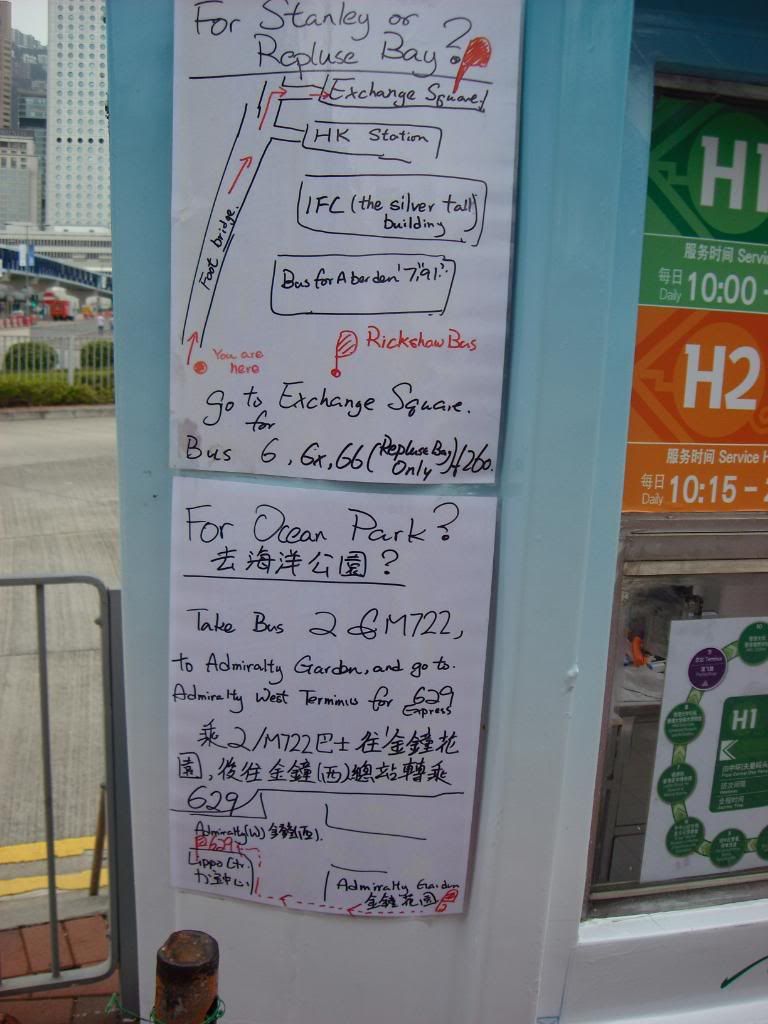 For Stanley or
Repluse Bay?
Exchange Square
HK Station
IFC (the silver tall
building
Foot bridge.
Bus for Aberden "7,91".
You are
here
Rickshaw Bus
go to Exchange Square.
for
Bus 6, 6x, 66 (Repluse Bay
Only) / 260.
For Ocean Park?
去海洋公園?
Take Bus 2 & M722,
to Admiralty Garden, and go to.
Admiralty West Terminus for 629
Express
乘2/M722巴士往金鐘花
園,後往金鐘(西)總站轉乘
629
Admiralty(W) 金鐘(西).
629
Lippo Ctr.
力宝中心
Admiralty Garden
金鐘花园
H1
服务时间 Servic
每日
Daily 10:00 -
H2
服务时间 Service H
每日
Daily 10:15 - 2
H1